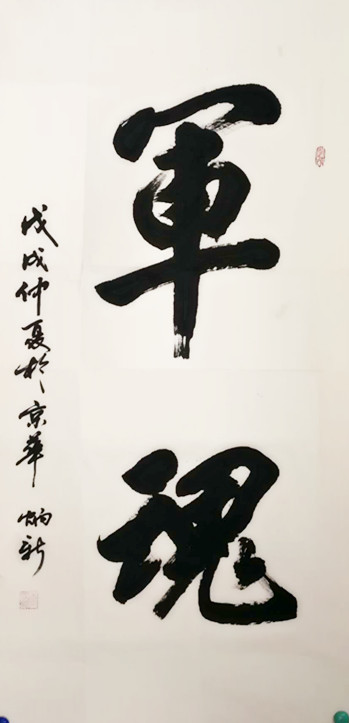 軍魂
戊戌仲夏於京華 炳新